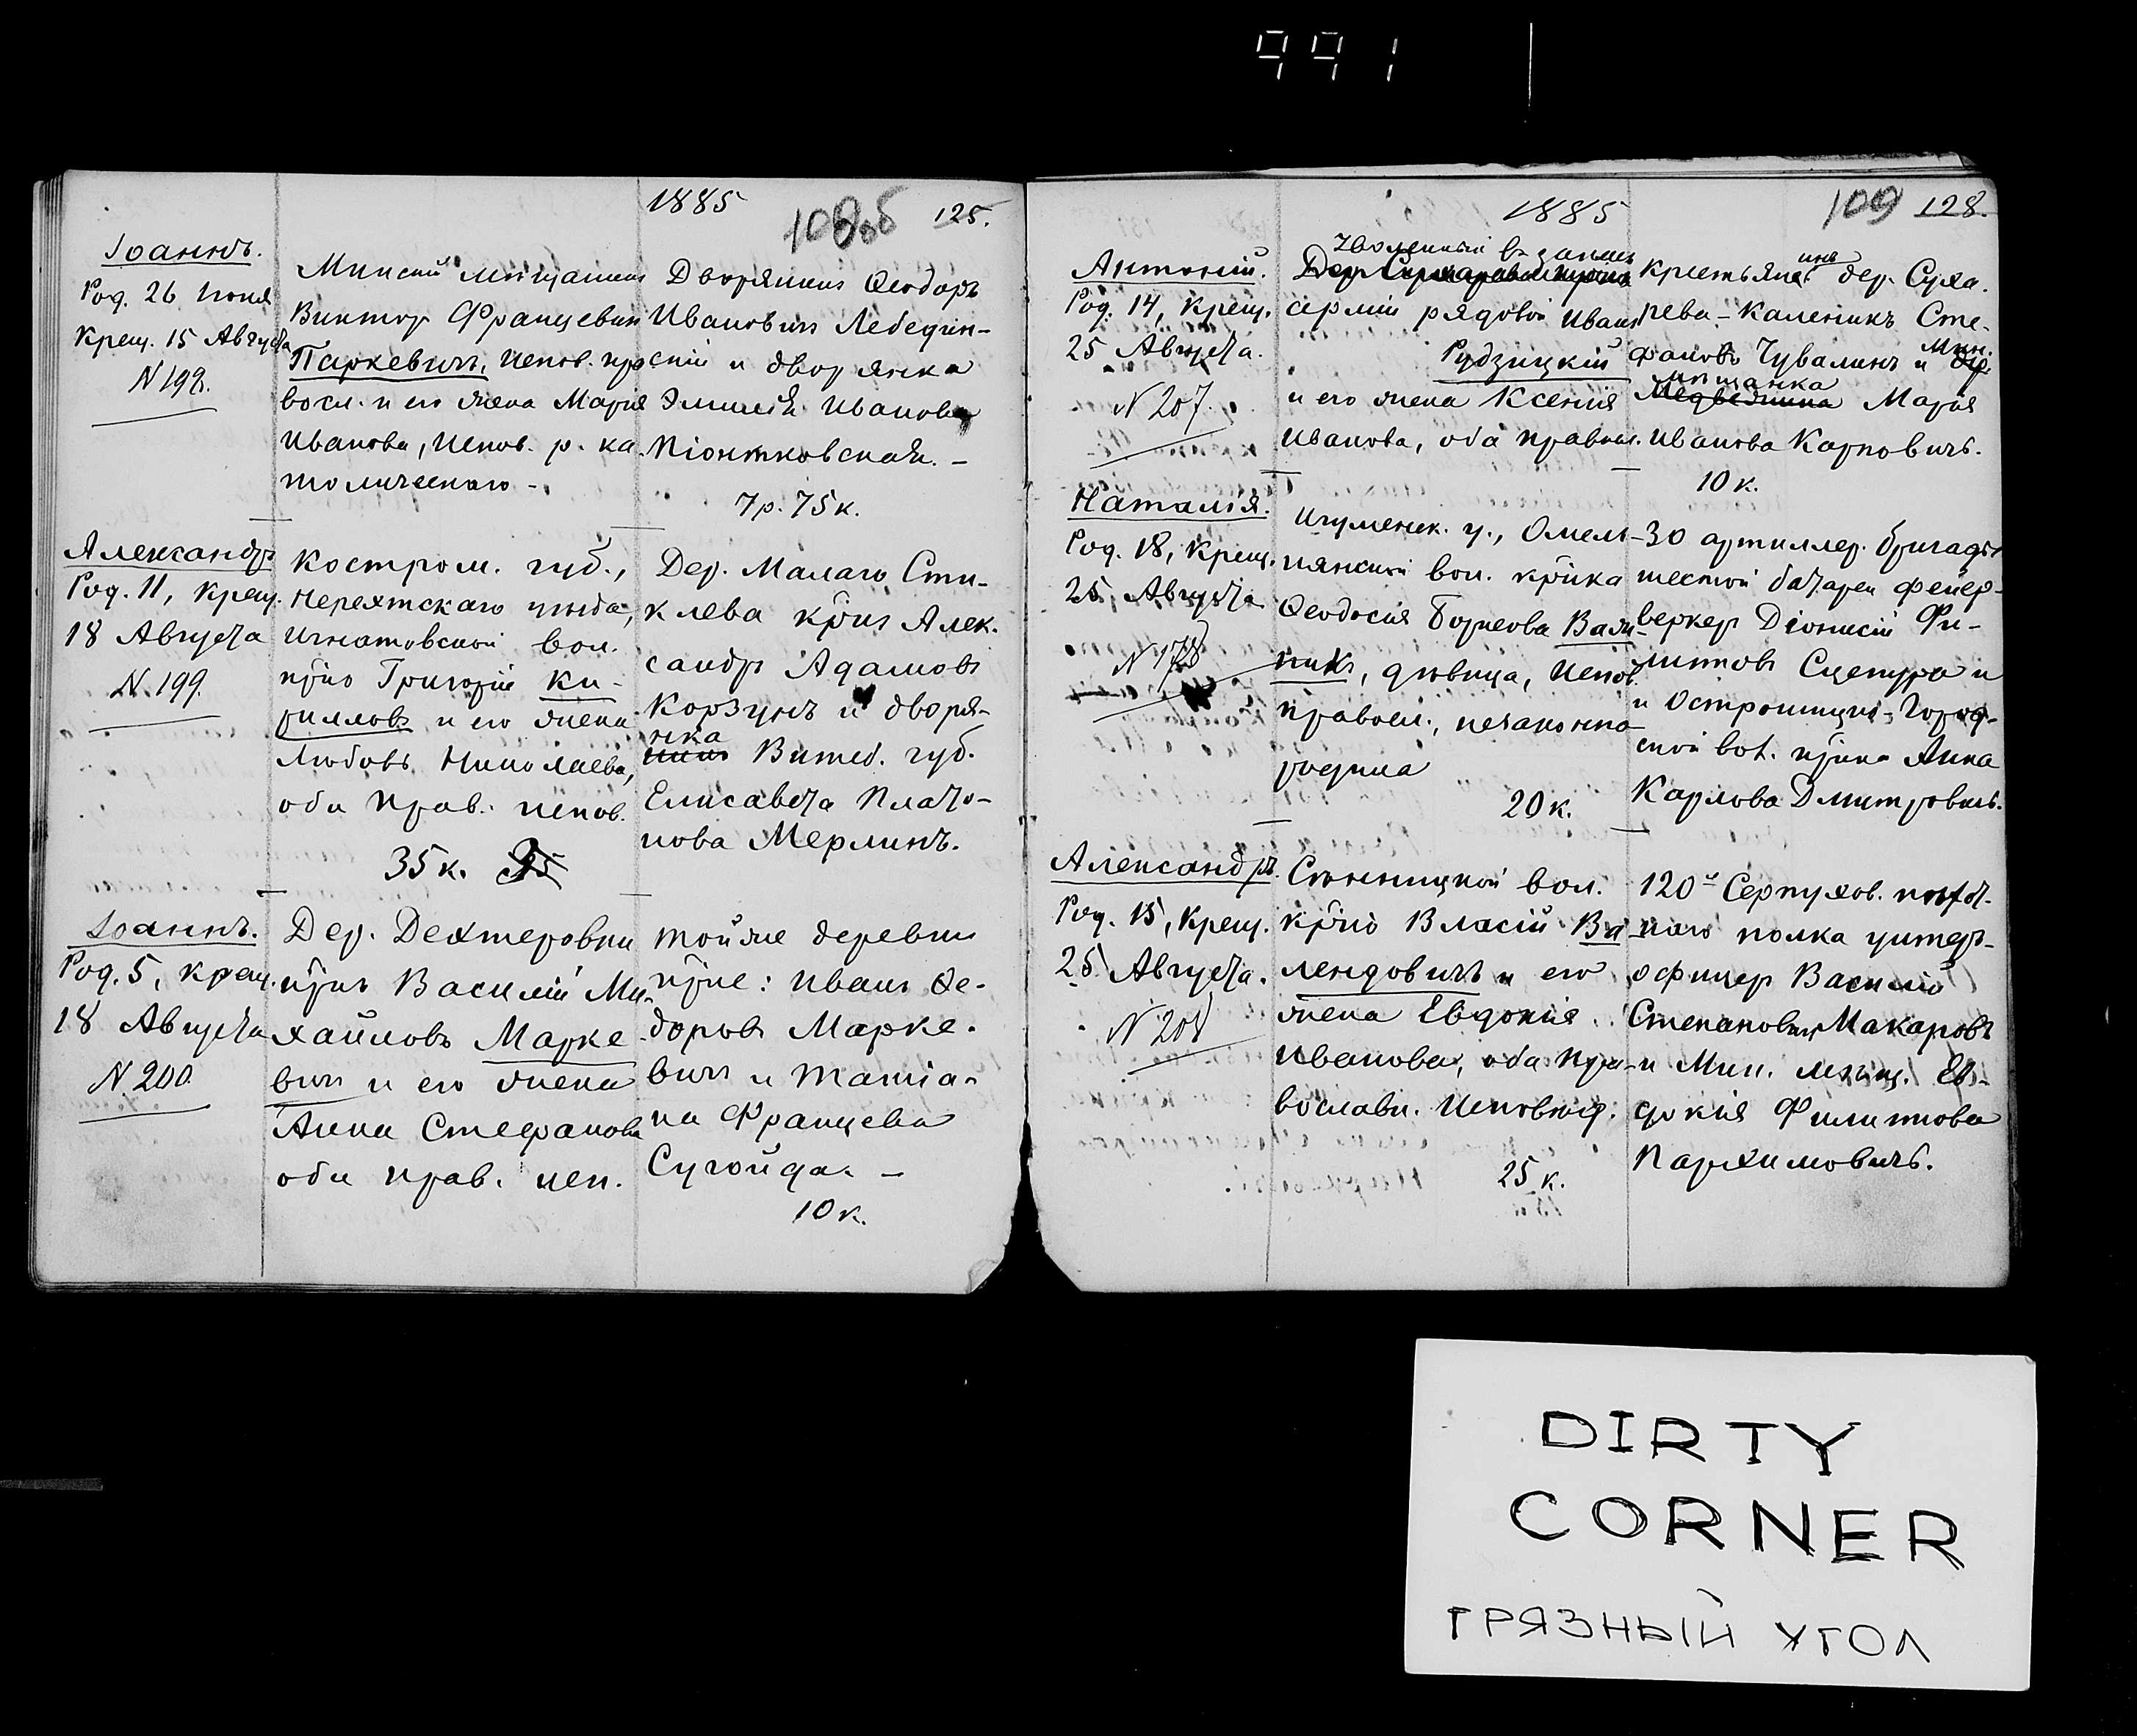 991
1885
108об 125.
Іоаннъ.
Род. 26 Іюня
Крещ. 15 Августа
N 198.
Минскій мѣщанинъ
Викторъ Францевичъ
Паркевичъ, испов. пра
восл. и его жена Марія
Иванова, испов. р. ка-
толическаго -
Дворянинъ Ѳеодоръ
Ивановичъ Лебедин-
скій и дворянка
Эмилія Иванова
Піонтковская. -
7 р. 75 к.
Александръ
Род. 11, Крещ.
18 Августа
N. 199.
Костром. губ.,
Нерехтскаго уѣзда,
Игнатовской вол.
кр̃нъ Григорій Ки-
рилловъ и его жена
Любовь Николаева,
оба прав. испов.
35 к. 35
Дер. Малаго Сти-
клева кр̃нъ Алек-
сандръ Адамовъ
Корзунъ и дворя-
нка
Витеб. губ.
Елисавета Плато-
нова Мерлинъ.
Іоаннъ.
Род. 5, крещ.
18 Августа
N. 200.
Дер. Дехтеровки
кр̃нъ Василій Ми-
хайловъ Марке-
вичъ и его жена
Анна Стефанова
оба прав. исп.
тойже деревни
кр̃не: Иванъ Ѳе-
доровъ Марке-
вичъ и Татіа-
на Францева
Сугойда. -
10 к.
1885
109 128.
Антоній.
Род. 14, крещ.
25 Августа.
N 207.
Уволенный въ запасъ
арміи рядовой Иванъ
Рудзицкій
и его жена Ксенія
Иванова, оба правосл.
инъ
Крестьяне дер. Суха-
рева - Каленикъ Сте-
фановъ Чувалинъ и Мин.
мѣщанка
Медведкина Марія
Иванова Карповичъ.
10 к.
Наталія.
Род. 18, Крещ.
25 Августа
N 178
Игуменск. у., Омель-
нянской вол. кр̃нка
Ѳеодосія Борисова Вали-
никъ, дѣвица, испов.
правосл., незаконно
родила
20 к.
30 артиллер. бригады
шестой батареи фейер-
веркер Діонисій Фи-
липовъ Сцепура и
и Острошицко-Город-
ской вол. кр̃нка Анна
Карлова Дмитровичъ.
Александръ.
Род. 15, Крещ.
25 Августа.
N 208
Сѣнницкой вол.
кр̃нъ Власій Ва-
лендовичъ и его
жена Евдокія
Иванова, оба пра-
вославн. исповѣд.
25 к.
120го Серпухов. пѣхот-
наго полка унтеръ-
офицер Василій
Степановичъ Макаровъ
и Мин. мѣщ. Ев-
докія Филиппова
Пархимовичъ.
DIRTY
CORNER
ГРЯЗНЫЙ УГОЛ